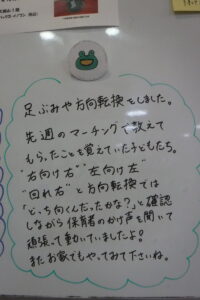 足ぶみや方向転換をしました。
先週のマーチングで教えて
もらったことを覚えていた子どもたち。
"右向け右" "左向け左"
"回れ右"と方向転換では
「どっち向くんだったかな?」と確認
しながら保育者のかけ声を聞いて
頑張って動いていましたよ!
またお家でもやってみて下さいね。